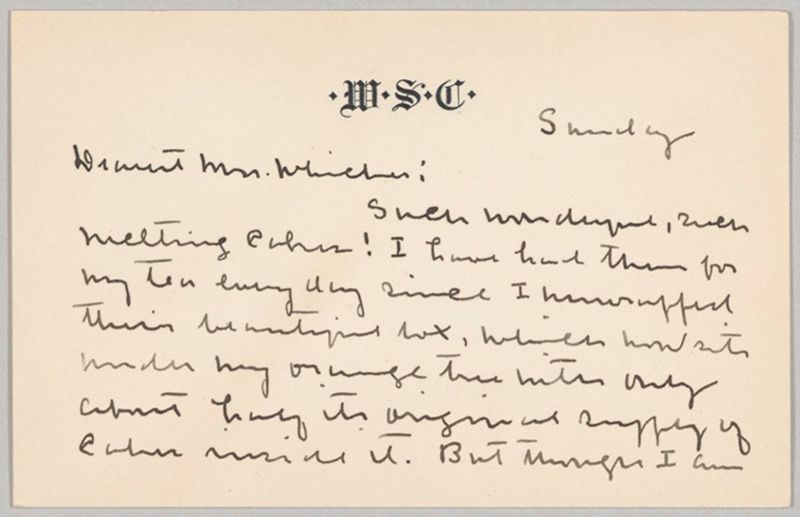 ·W·S·C·
Sunday
Dearest Mrs. Whicher:
Such wonderful, such
melting cakes! I have had them for
my tea every day since I unwrapped
their beautiful box, which now sits
under my orange tree with only
about half its original supply of
cakes inside it. But though I am